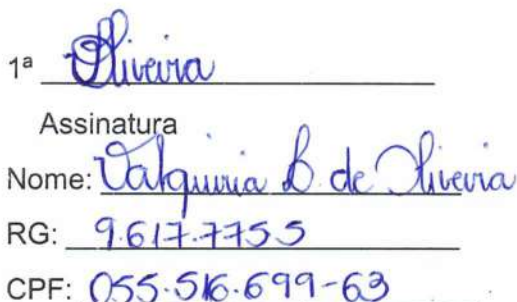 1ª Oliveira
Assinatura
Nome: Valquiria B. de Oliveira
RG: 9.617.7755
CPF: 055.516.699-63